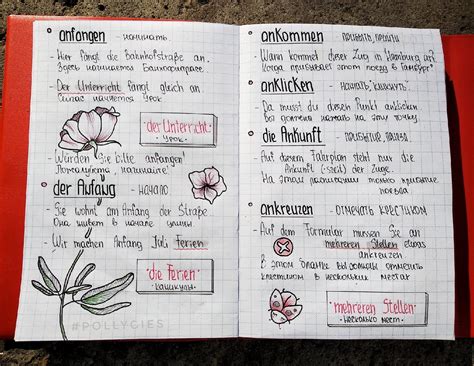 anfangen - начинать
- Hier fängt die Bahnhofstraße an.
Здесь начинается Банхофштрассе.
- Der Unterricht fängt gleich an.
Сейчас начнется урок.
der Unterricht
- урок -
- Würden Sie bitte anfangen!
Пожалуйста, начинайте!
der Anfang - начало
- Sie wohnt am Anfang der Straße
Она живет в начале улицы
- Wir machen Anfang Juli Ferien
die Ferien
- каникулы -
#POLLYCIES
ankommen - прибыть, прийти
- Wann kommt dieser Zug in Hamburg an?
Когда прибывает этот поезд в Гамбург?
anklicken - нажать, кликнуть
- Da musst du diesen Punkt anklicken
Вы должны нажать на эту точку.
die Ankunft - прибытие, приезд
- Auf diesem Fahrplan steht nur die
Ankunft (-szeit) der Züge.
На этом расписании только прибытие
поезда
ankreuzen - отметить крестиком
- Auf dem Formular müssen Sie an
mehreren Stellen etwas
ankreuzen
В этом бланке вы должны отметить
крестиком в нескольких местах
mehreren Stellen
- несколько мест -